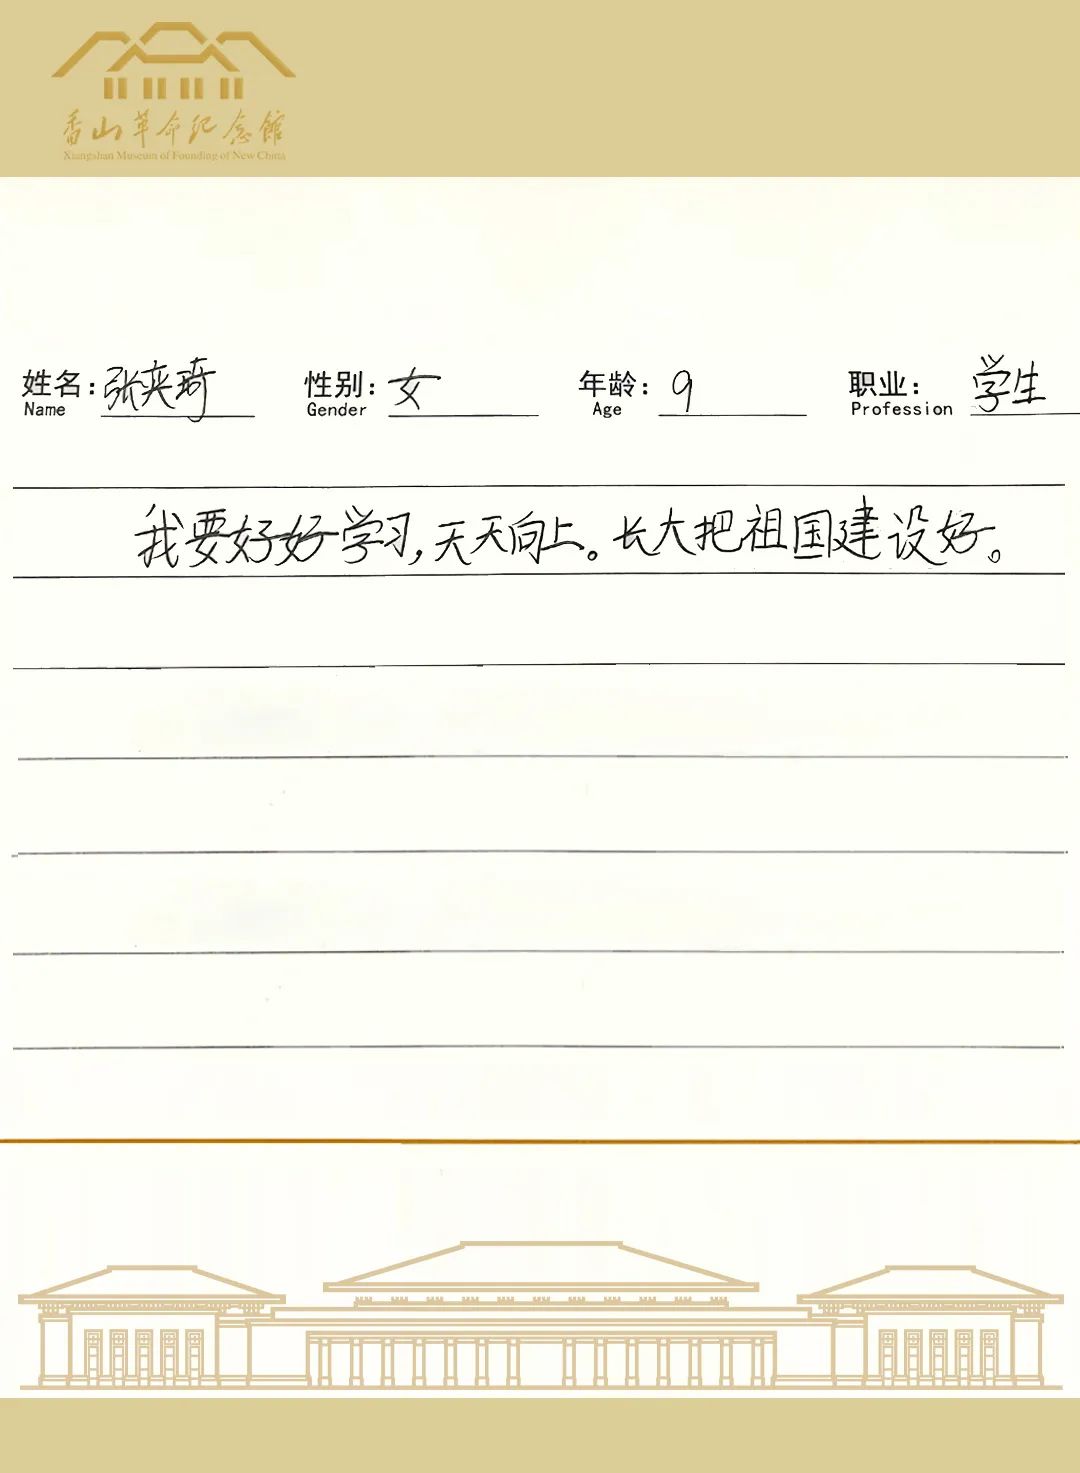 香山革命纪念馆
Xiangshan Museum of Founding of New China
姓名: 张夹琦 性别: 女 年龄: 9 职业: 学生
Name Gender Age Profession
我要好好学习,天天向上。长大把祖国建设好。